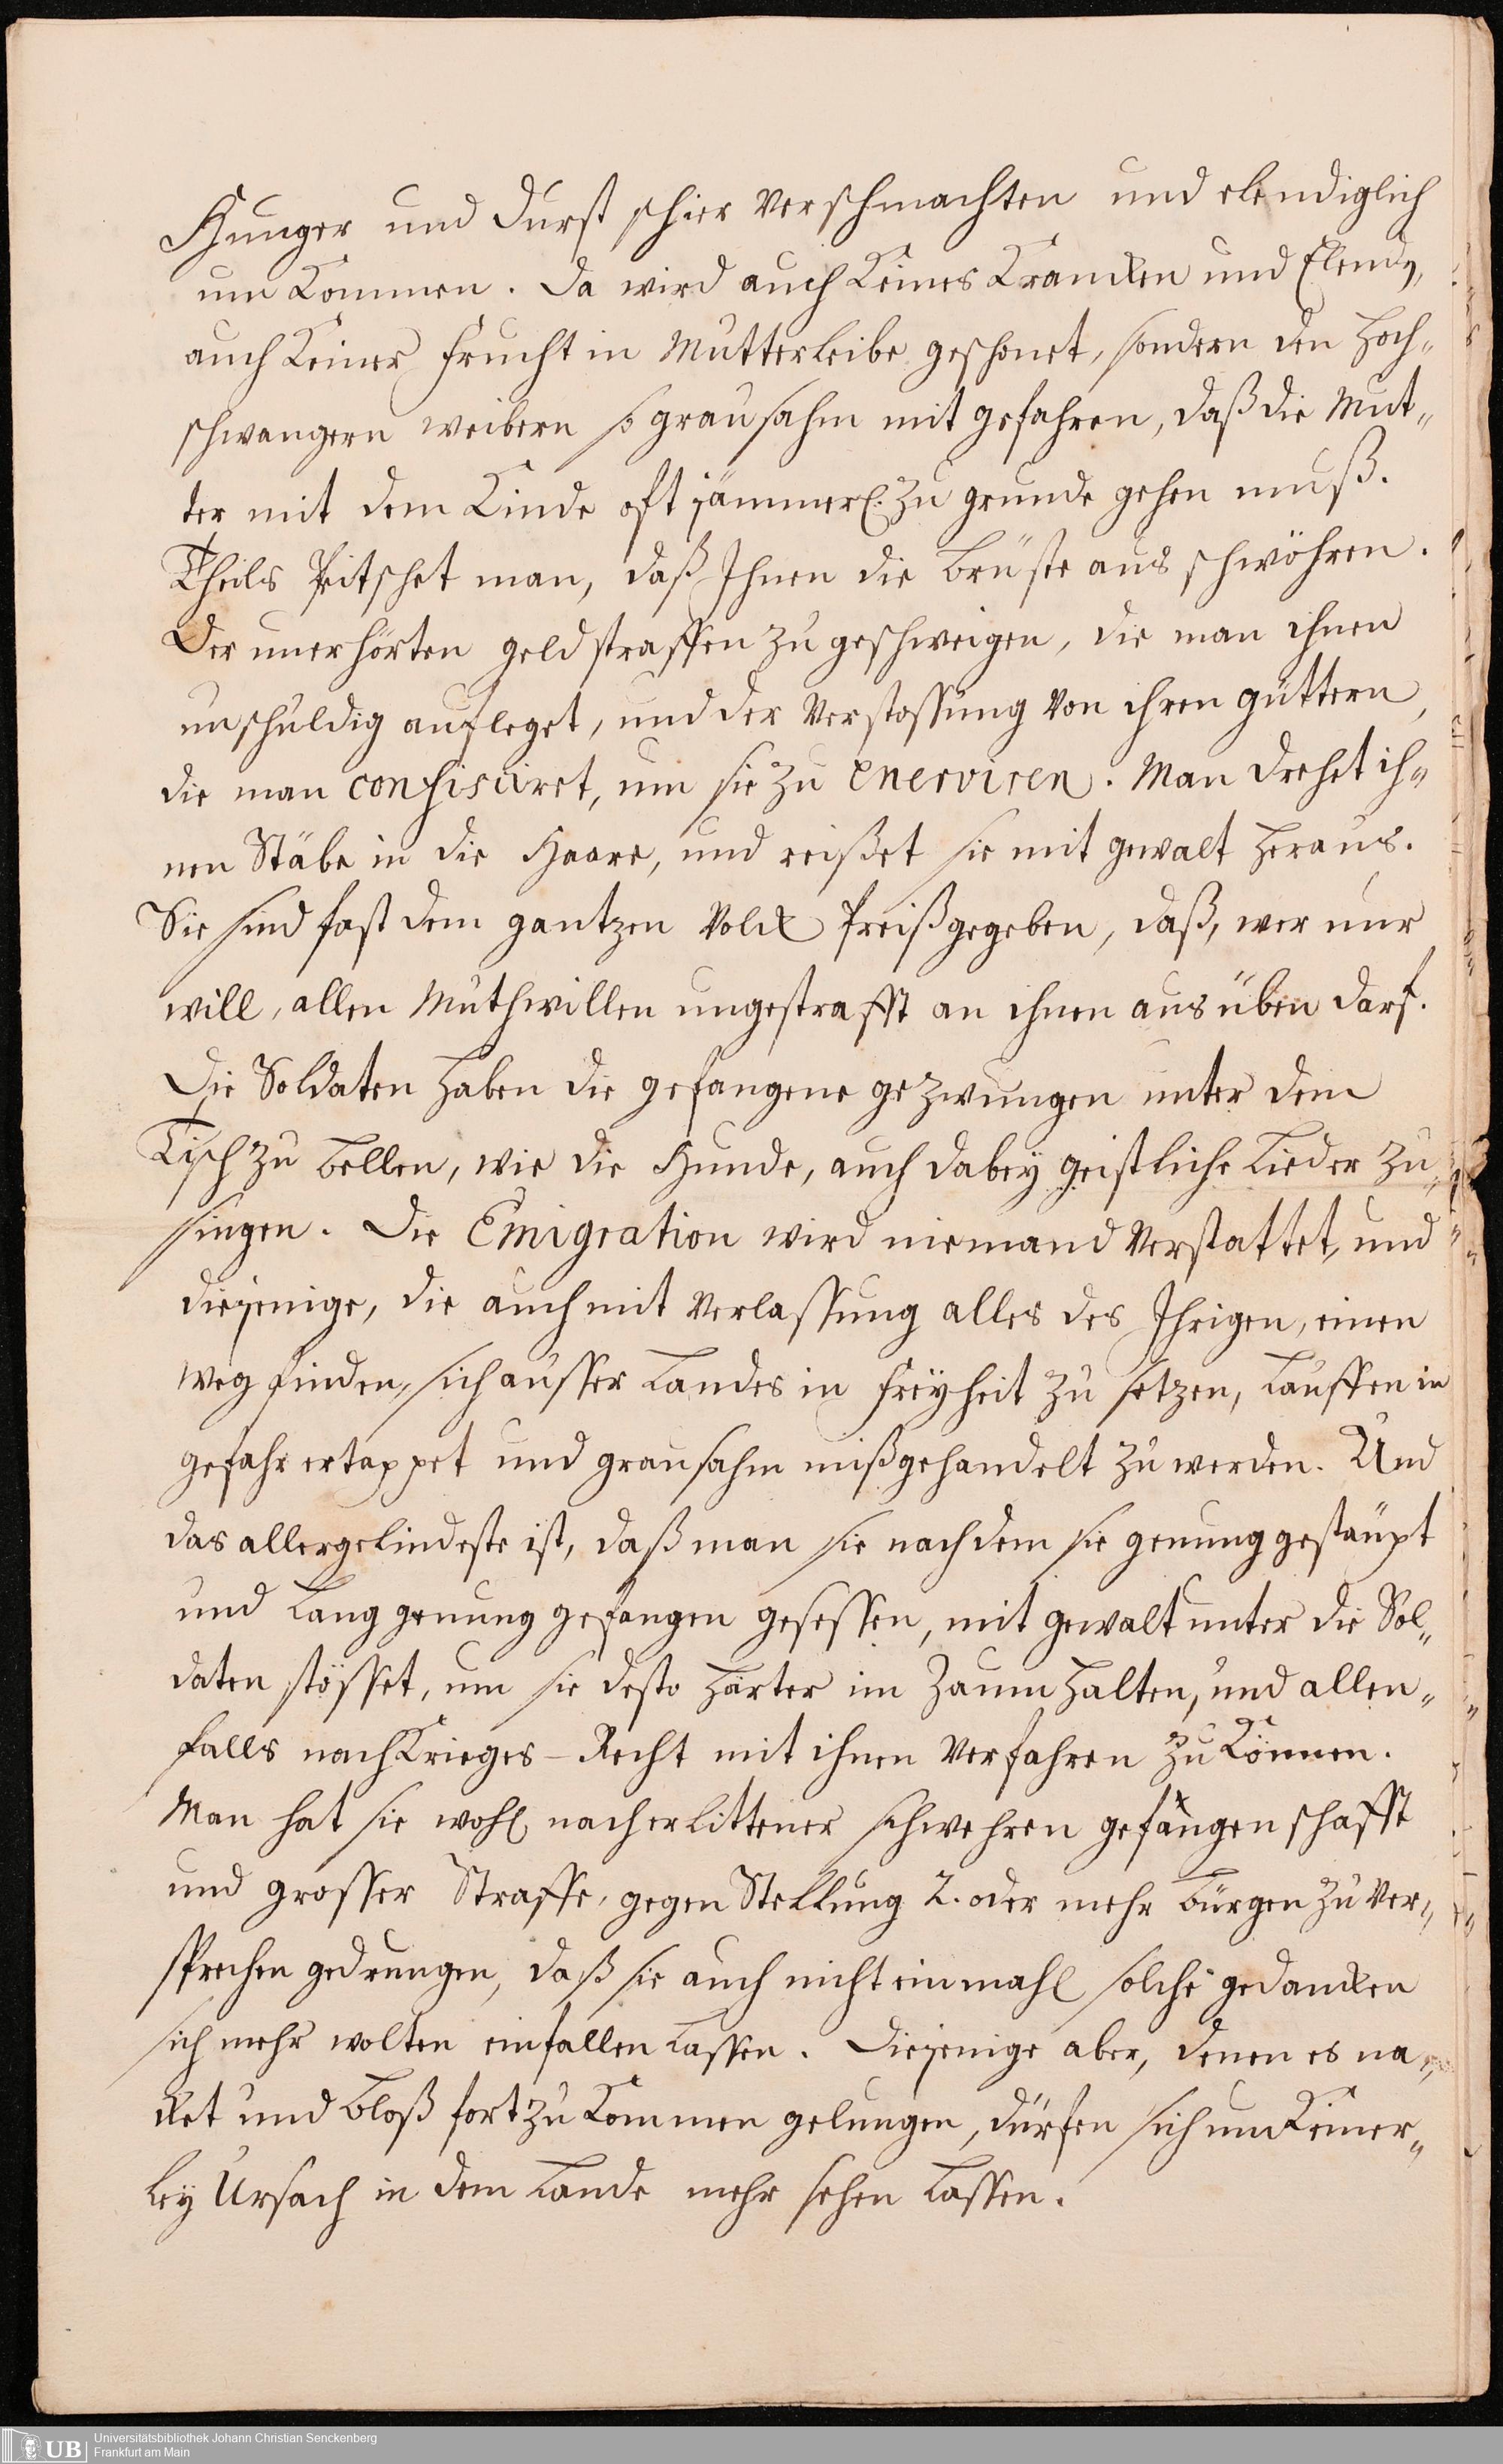 Hunger und Durst schier verschmachten und elendiglich
um kommen. Da wird auch keines Krancken und Elendē,
auch keiner Frucht in Mutterleibe geschonet, sondern den hoch„
schwangern weibern so grausahm mit gefahren, daß die Mut„
ter mit dem Kinde oft jämmerl. zu grunde gehen muß.
Theils Peitschet man, daß Ihnen die Brüste aus schwöhren.
Der unerhörten geldstraffen zu geschweigen, die man ihnen
unschuldig aufleget, und der Verstossung von ihren güttern,
die man confisciret, um sie zu enerviren. Man drehet ih„
nen Stäbe in die Haare, und reißet sie mit gewalt heraus.
Sie sind fast dem gantzen Volck Preißgegeben, daß, wer nur
will, allen Muthwillen ungestrafft an ihnen aus üben darf.
Die Soldaten haben die gefangene gezwungen unter dem
Tisch zu bellen, wie die Hunde, auch dabey geistliche Lieder zu„
singen. Die Emigration wird niemand verstattet, und
diejenige, die auch mit verlassung alles des Ihrigen, einen
weg finden, sich ausser Landes in Freyheit zu setzen, lauffen in
gefahr ertappet und grausahm mißgehandelt zu werden. Und
das allergelindeste ist, daß man sie nachdem sie genung gestäupt
und lang genung gefangen gesessen, mit gewalt unter die Sol„
daten stösset, um sie desto härter im Zaum halten, und allen„
falls nach Krieges-Recht mit ihnen verfahren zu können.
Man hat sie wohl nach erlittener schwehren gefangenschafft
und grosser Straffe, gegen Stellung 2. oder mehr Bürgen zu ver„
sprechen gedrungen, daß sie auch nicht einmahl solche gedancken
sich mehr wolten einfallen lassen. Diejenige aber, denen es na„
cket und bloß fort zu kommen gelungen, dürfen sich um keiner„
ley Ursach in dem Lande mehr sehen lassen.
UB
Universitätsbibliothek Johann Christian Senckenberg
Frankfurt am Main